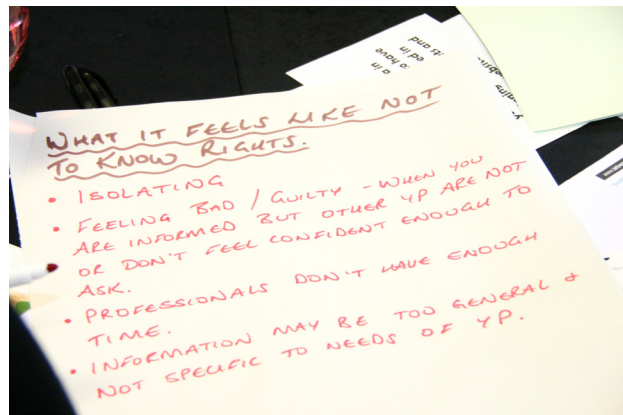 WHAT IT FEELS LIKE NOT
TO KNOW RIGHTS.
• ISOLATING
• FEELING BAD / GUILTY - WHEN YOU
ARE INFORMED BUT OTHER YP ARE NOT
OR DON'T FEEL CONFIDENT ENOUGH TO
ASK.
• PROFESSIONALS DON'T HAVE ENOUGH
TIME.
• INFORMATION MAY BE TOO GENERAL &
NOT SPECIFIC TO NEEDS OF YP.
a in
to have
ed in
its and